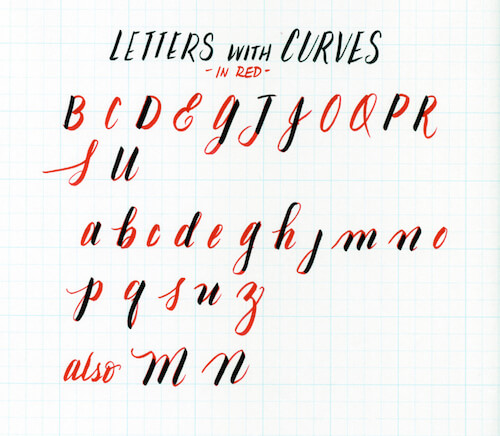 LETTERS WITH CURVES
- IN RED -
B C D E G J J O Q P R
S U
a b c d e g h j m n o
p q s u z
also M N